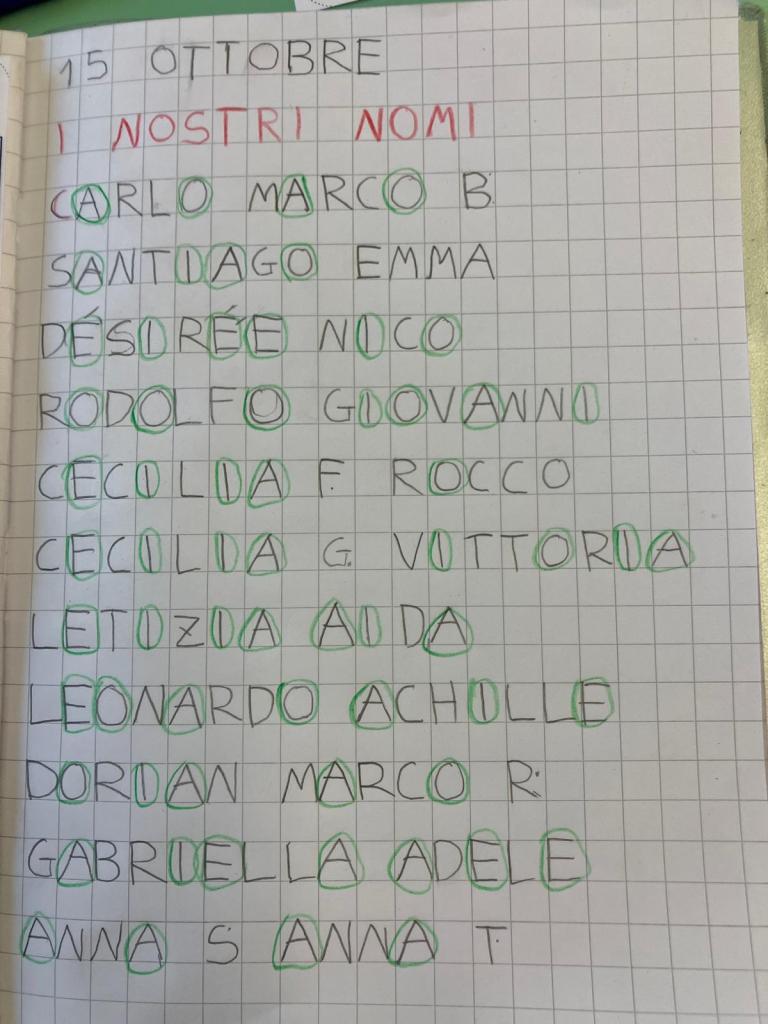 15 OTTOBRE
I NOSTRI NOMI
CARLO MARCO B
SANTIAGO EMMA
DÉSIRÉE NICO
RODOLFO GIOVANNI
CECILIA F. ROCCO
CECILIA G. VITTORIA
LETIZIA AIDA
LEONARDO ACHILLE
DORIAN MARCO R.
GABRIELLA ADELE
ANNA S ANNA T